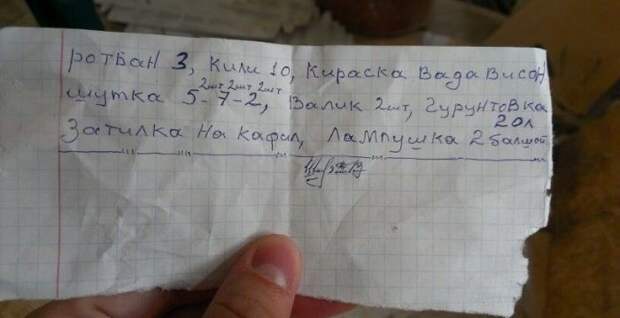 ротбан 3, кили 10, кираска вадависон
2шт, 2шт, 2шт
шутка 5-7-2, валик 2шт, гурунтовка
20л
Затилка на кафил, лампушка 2 балшой